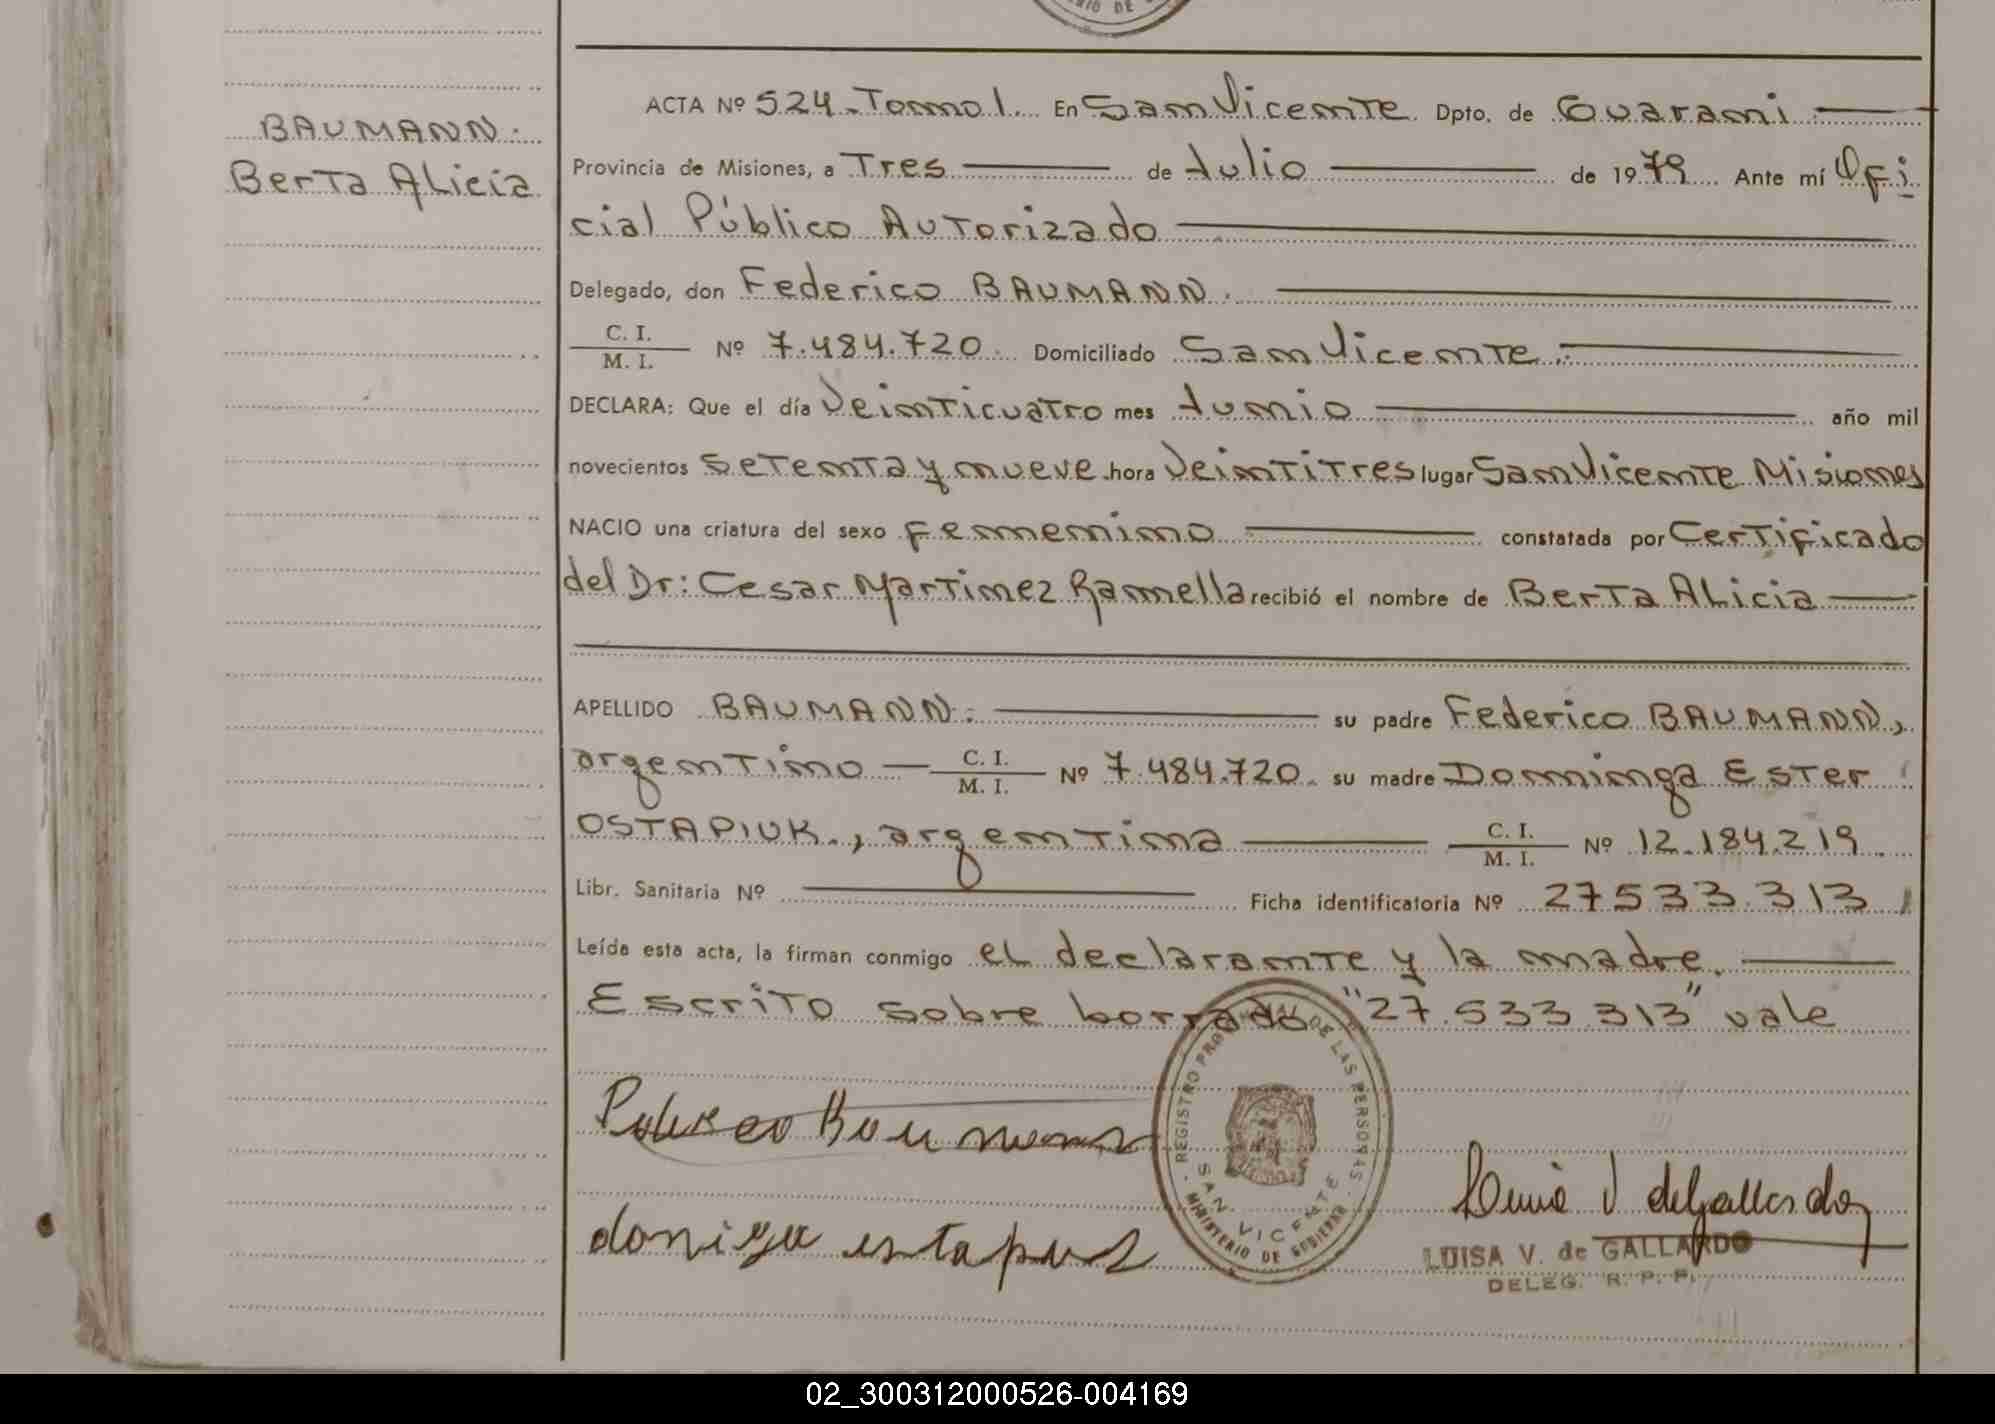 NIO DE
ACTA Nº 524 - Tomo 1. En San Vicente Dpto. de Guarani
BAUMANN.
Berta Alicia
Provincia de Misiones, a Tres de Julio de 1979 Ante mí Ofi
cial Público Autorizado
Delegado, don Federico BAUMANN.
C. I.
M. I.
Nº 7.484.720. Domiciliado San Vicente.
DECLARA: Que el día Veinticuatro mes Junio año mil
novecientos setenta y nueve hora Veintitres lugar San Vicente Misiones
NACIO una criatura del sexo femenino constatada por Certificado
del Dr: Cesar Martinez Ramella recibió el nombre de Berta Alicia
APELLIDO BAUMANN. su padre Federico BAUMANN,
argentino C. I. M. I. Nº 7.484.720. su madre Dominga Ester
OSTAPIUK., argentina C. I. M. I. Nº 12.184.219.
Libr. Sanitaria Nº Ficha identificatoria Nº 27533.313
Leída esta acta, la firman conmigo el declarante y la madre.
Escrito sobre borrado "27.533.313" vale
REGISTRO PROVINCIAL DE LAS PERSONAS
SAN VICENTE
MINISTERIO DE GOBIERNO
Luisa V de Gallardo
LUISA V. de GALLARDO
DELEG. R. P. P.
02_300312000526-004169